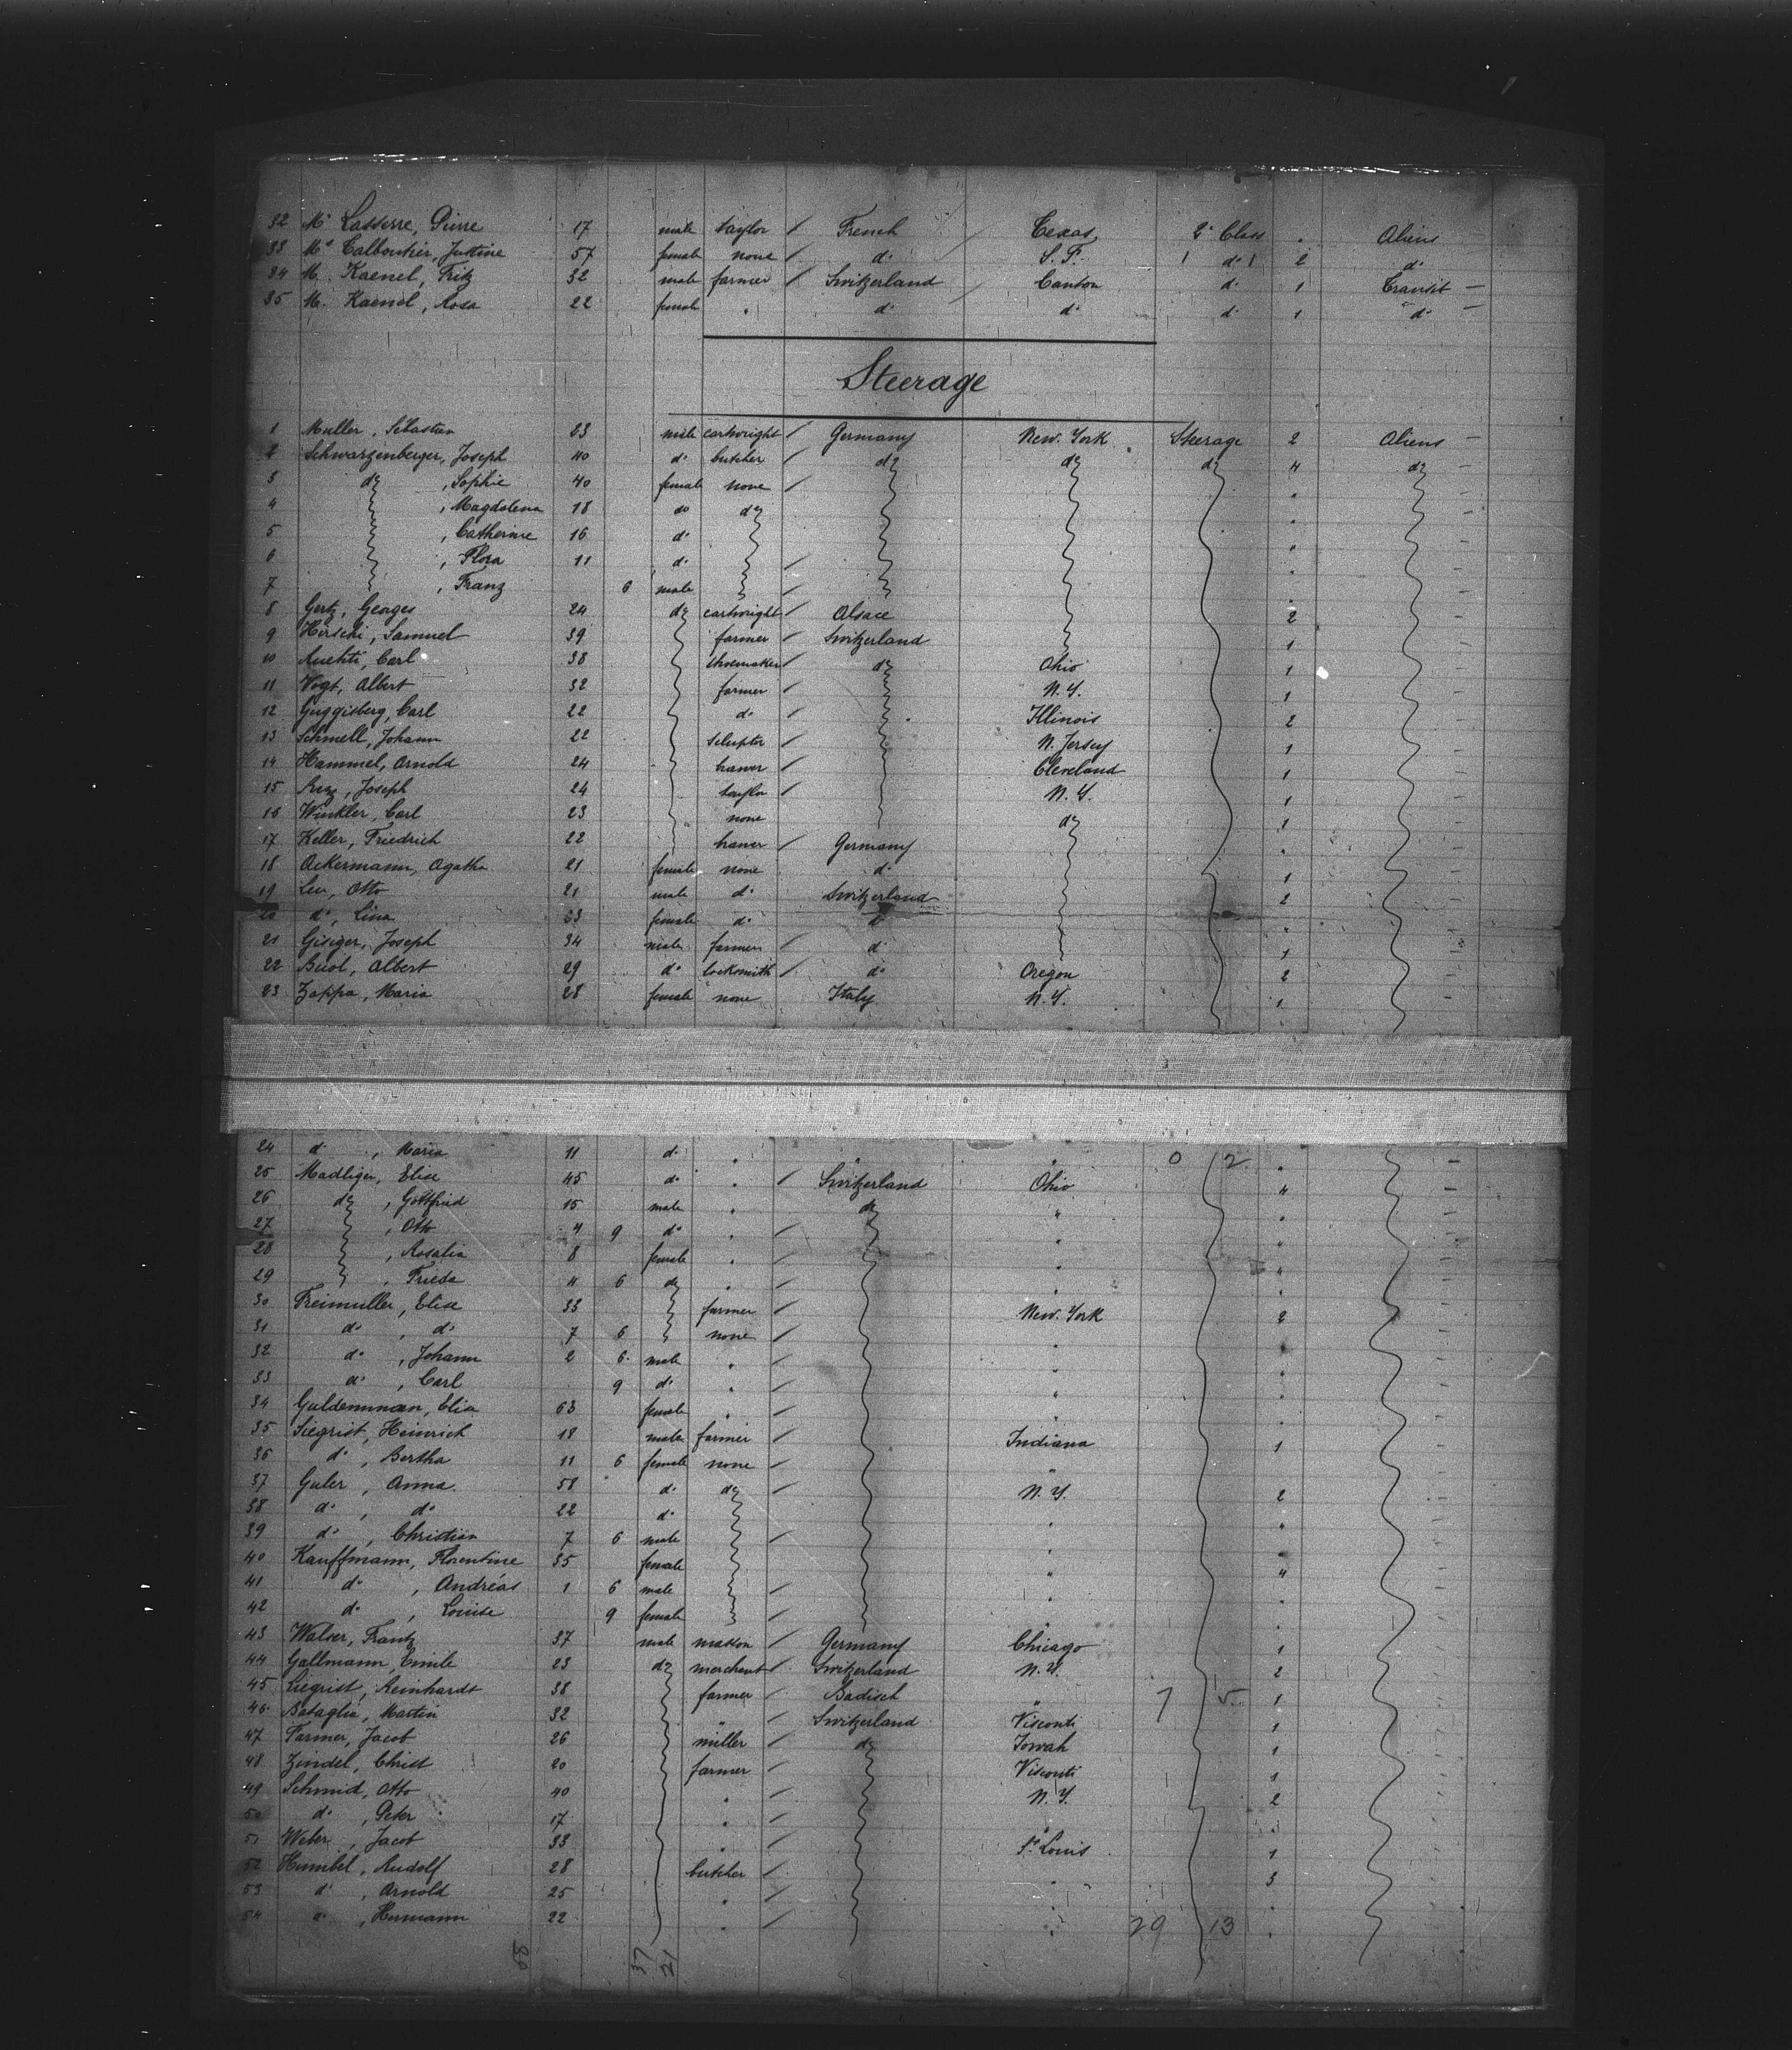 32 Mr Lasserre, Pierre 17 male taylor / French / Texas 2d Class " Aliens
33 Me Calbouhier, Justine 57 female none / do S. F. do 2 do
34 M. Kaenel, Fritz 32 male farmer / Switzerland Canton do 1 Transit —
35 M. Kaenel, Rosa 22 female " do do do 1 do —
Steerage
1 Muller, Sébastien 23 male cartwright / Germany New. York Steerage 2 Aliens —
2 Schwarzenberger, Joseph 40 do butcher / do do do 4 do —
3 do , Sophie 40 female none / " —
4 , Magdalena 18 do do " —
5 , Catherine 16 do " —
6 , Flora 11 do / " —
7 , Franz 6 male / " —
8 Gertz, Georges 24 do cartwright / Alsace 2 —
9 Hirschi, Samuel 39 farmer / Switzerland 1 —
10 Ruchti, Carl 38 shoemaker / do Ohio 1 —
11 Vogt, Albert 32 farmer / N. Y. 1 —
12 Guggisberg, Carl 22 do / Illinois 2 —
13 Schmell, Johann 22 sculptor / N. Jersey 1 —
14 Hammel, Arnold 24 / Cleveland 1 —
15 Joseph 24 taylor / N. Y. 1 —
16 Winkler, Carl 23 none do 1 —
17 Keller, Friedrich 22 / Germany " —
18 Ackermann, Agatha 21 female none do 1 —
19 Leu, Otto 21 male do Switzerland 2 —
20 do, Lina 23 female do do " —
21 Gisiger, Joseph 34 male farmer / do 1 —
22 Buol, Albert 29 do locksmith / do Oregon 2 —
23 Zappa, Maria 28 female none Italy N. Y. 1 —
24 do , Maria 11 do " " " 0 2 " —
25 Madliger, Elise 45 do " / Switzerland Ohio 4 —
26 do , Gottfried 15 male " do " " —
27 , Otto 4 9 do " / " " —
28 , Rosalia 8 female " " " —
29 , Frieda 4 6 do " / " " —
30 Freimuller, Elise 33 farmer / New. York 2 —
31 do , do 7 6 none / " " —
32 do , Johann 2 6 male " / " " —
33 do , Carl 9 do " / " " —
34 Guldenmann, Elise 63 female " / " " —
35 Siegrist, Heinrich 18 male farmer / Indiana 1 —
36 do , Bertha 11 6 female none / " " —
37 Guler , Anna 58 do do / N. Y. 2 —
38 do , do 22 do " " —
39 do , Christian 7 6 male / " " —
40 Kauffmann, Florentine 35 female " 4 —
41 do , Andréas 1 6 male / " " —
42 do , Louise 9 female / " " —
43 Walser, Frantz 37 male masson / Germany Chicago 1 —
44 Gallmann, Emile 23 do merchant / Switzerland N. Y. 2 —
45 Siegrist, Reinhardt 38 farmer / Badisch " 7 5 1 —
46 Bataglia, Martin 32 " / Switzerland Visconti 1 —
47 Farmer, Jacob 26 miller / do Iowah 1 —
48 Zindel, Christ 20 farmer / Visconti 1 —
49 Schmid, Otto 40 " / N. Y. 2 —
50 do , Peter 17 " / " " —
51 Weber, Jacob 33 " / St Louis 1 —
52 Humbel, Rudolf 28 butcher / " 3 —
53 do , Arnold 25 " / " " —
54 do , Hermann 22 " / " 29 13 " —
58 37 21